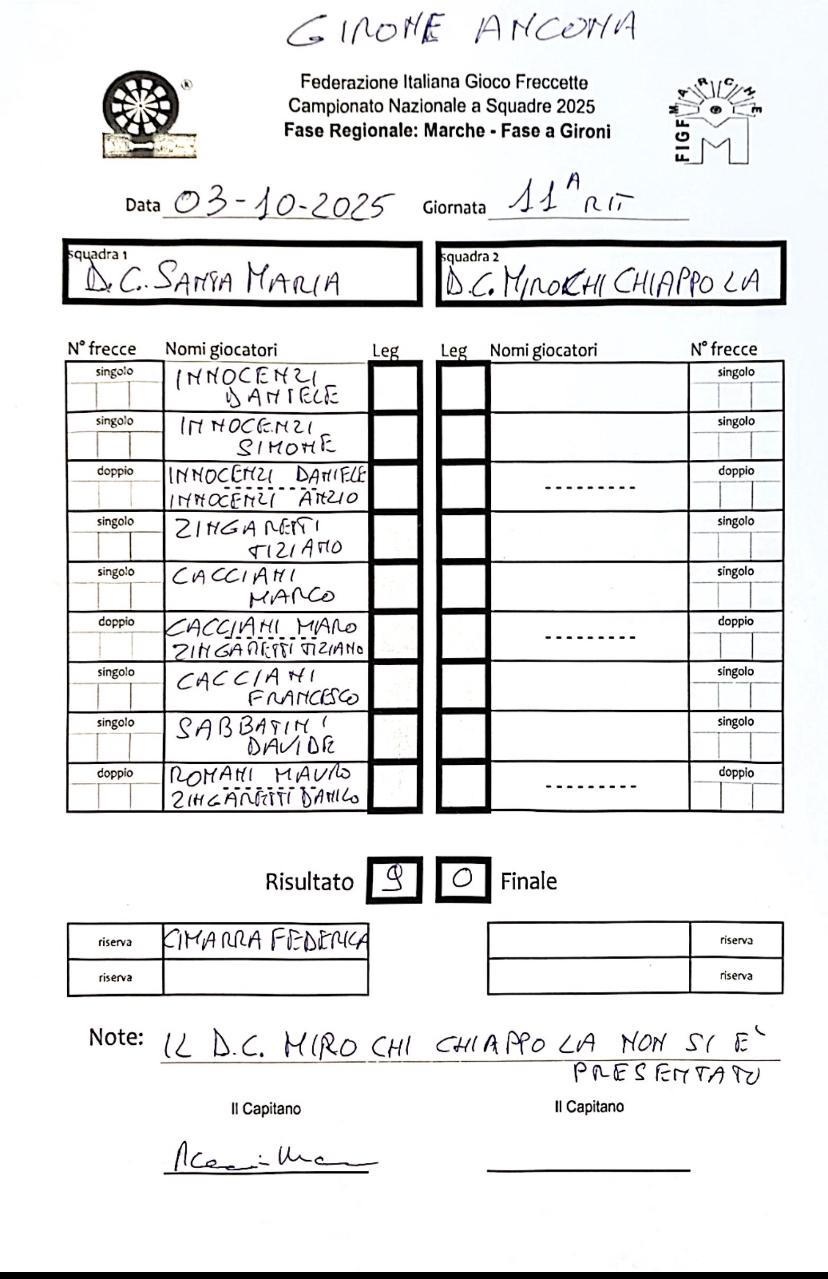 GIRONE ANCONA
Federazione Italiana Gioco Freccette
Campionato Nazionale a Squadre 2025
Fase Regionale: Marche - Fase a Gironi
FIGF MARCHE
M
Data 03-10-2025 Giornata 11ᴬ RIT
squadra 1 squadra 2
D.C. SANTA MARIA D.C. MIROCHI CHIAPPO LA
N° frecce Nomi giocatori Leg Leg Nomi giocatori N° frecce
singolo INNOCENZI singolo
DANIELE
singolo INNOCENZI singolo
SIMONE
doppio INNOCENZI DANIELE doppio
INNOCENZI ANZIO
singolo ZINGARETTI singolo
TIZIANO
singolo CACCIANI singolo
MARCO
doppio CACCIANI MARO doppio
ZINGARETTI TIZIANO
singolo CACCIANI singolo
FRANCESCO
singolo SABBATINI singolo
DAVIDE
doppio ROMANI MAURO doppio
ZINGARETTI DANILO
Risultato 9 0 Finale
riserva CIMARRA FEDERICA riserva
riserva riserva
Note: IL D.C. MIRO CHI CHIAPPO LA NON SI E'
PRESENTATO
Il Capitano Il Capitano